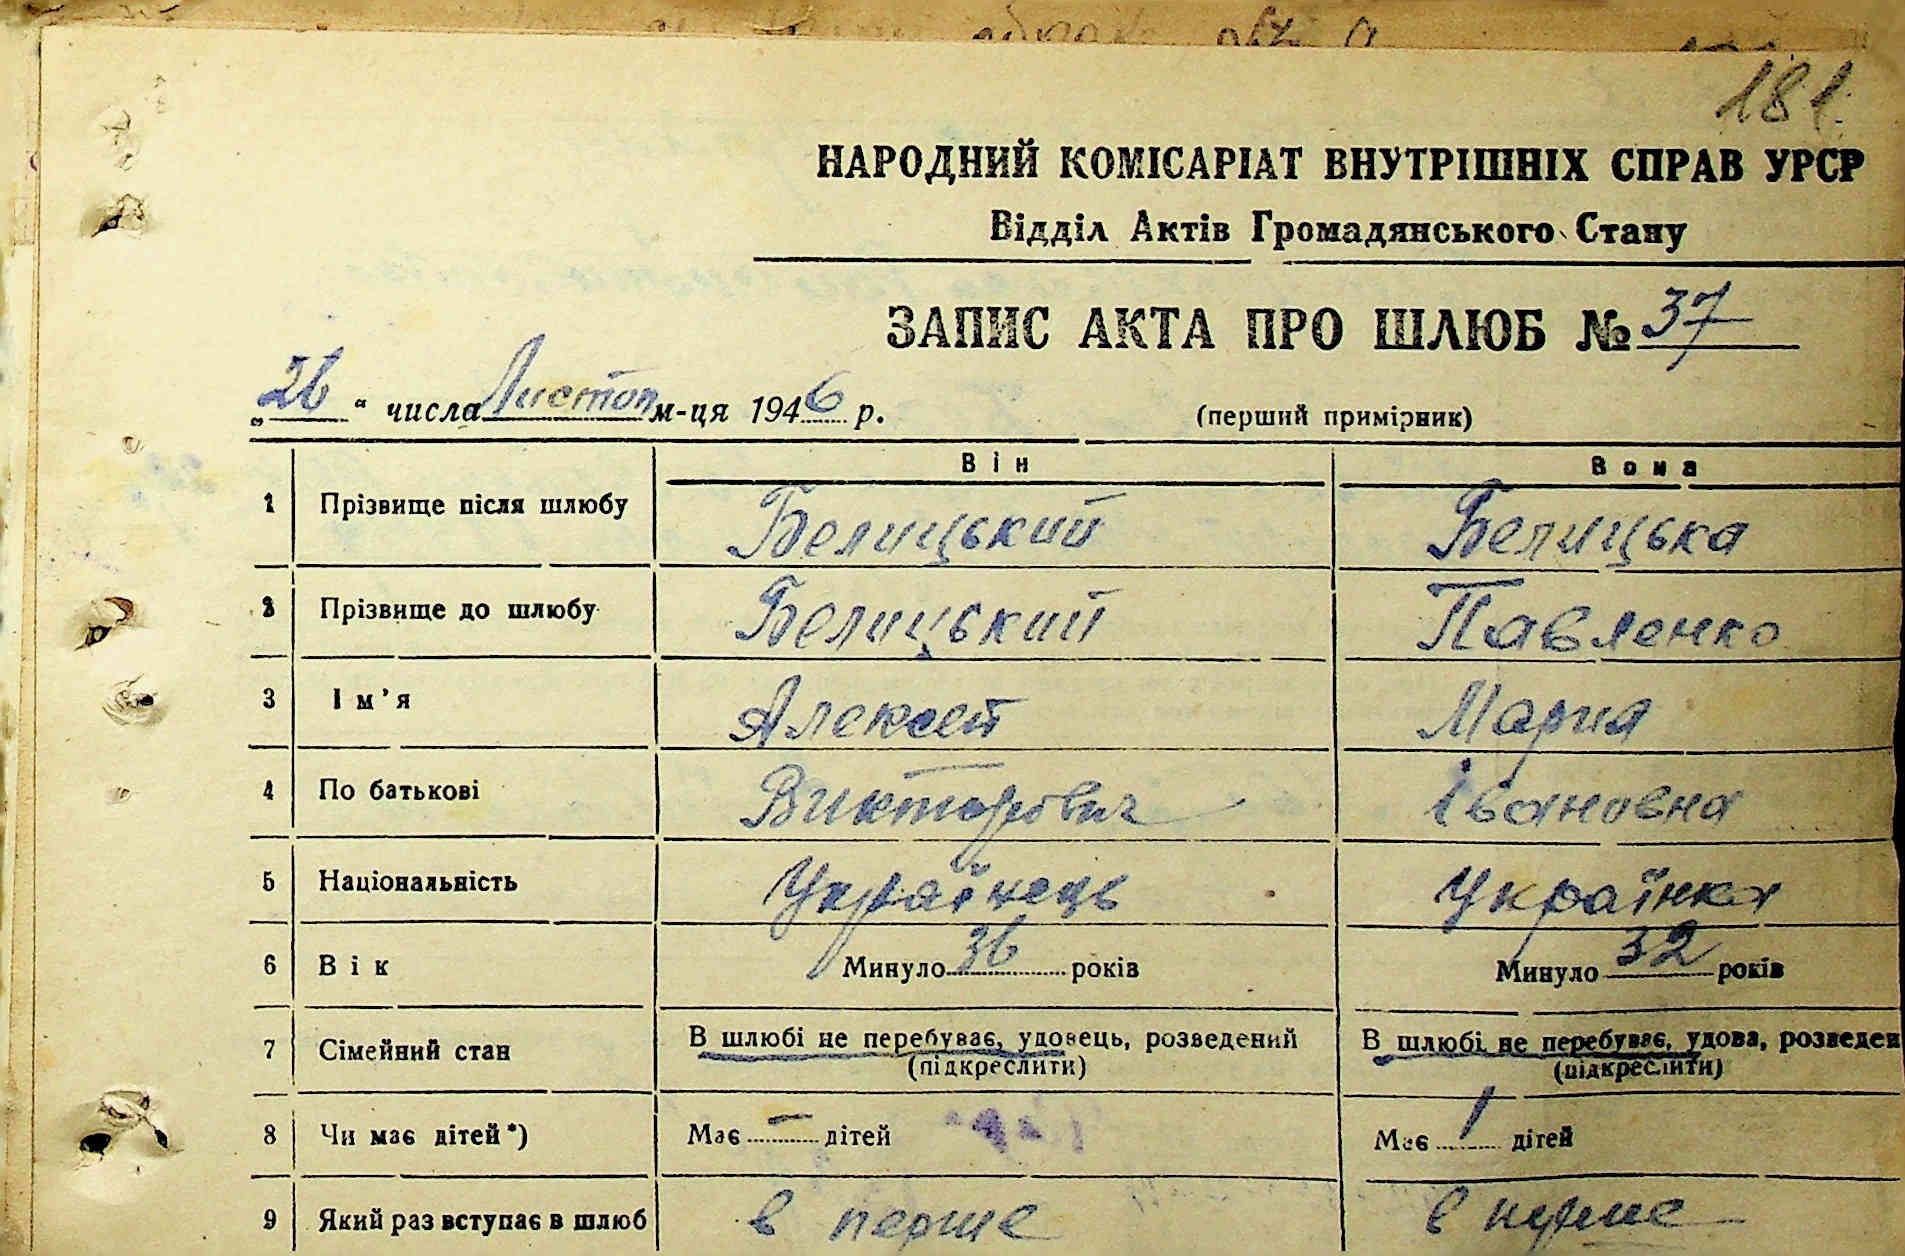 181
НАРОДНИЙ КОМІСАРІАТ ВНУТРІШНІХ СПРАВ УРСР
Відділ Актів Громадянського Стану
ЗАПИС АКТА ПРО ШЛЮБ № 37
„26“ числа Листоп м-ця 1946 р. (перший примірник)
Він Вона
1 Прізвище після шлюбу Белицький Белицька
2 Прізвище до шлюбу Белицький Павленко
3 Ім’я Алексей Мария
4 По батькові Викторович Івановна
5 Національність Українець Українка
6 Вік Минуло 36 років Минуло 32 років
7 Сімейний стан В шлюбі не перебуває, удовець, розведений В шлюбі не перебуває, удова, розведен
(підкреслити) (підкреслити)
8 Чи має дітей*) Має — дітей Має 1 дітей
9 Який раз вступає в шлюб в перше в перше